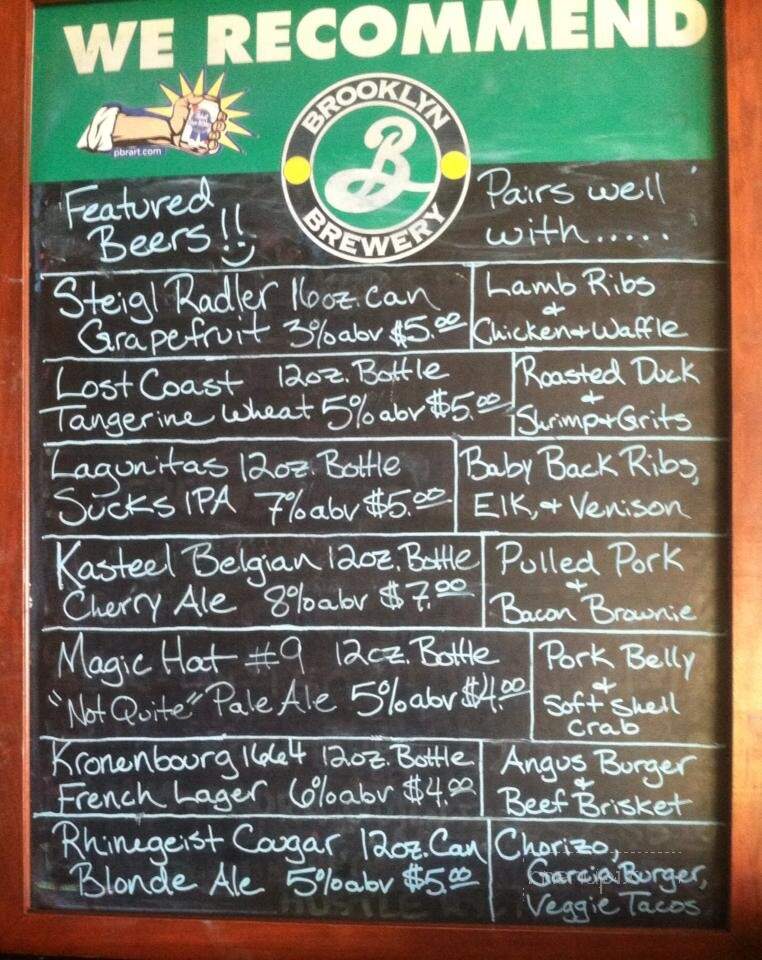 WE RECOMMEND
pbrart.com
BROOKLYN
B
BREWERY
Featured
Beers!!
Pairs well
with.....
Steigl Radler 16oz. can
Grapefruit 3% abv $5.00
Lamb Ribs
+
Chicken + Waffle
Lost Coast 12oz. Bottle
Tangerine Wheat 5% abv $5.00
Roasted Duck
+
Shrimp + Grits
Lagunitas 12oz. Bottle
Sucks IPA 7% abv $5.00
Baby Back Ribs,
Elk, + Venison
Kasteel Belgian 12oz. Bottle
Cherry Ale 8% abv $7.00
Pulled Pork
+
Bacon Brownie
Magic Hat #9 12oz. Bottle
"Not Quite" Pale Ale 5% abv $4.00
Pork Belly
+
Soft Shell
Crab
Kronenbourg 1664 12oz. Bottle
French Lager 6% abv $4.00
Angus Burger
+
Beef Brisket
Rhinegeist Cougar 12oz. Can
Blonde Ale 5% abv $5.00
Chorizo,
Burger,
Veggie Tacos